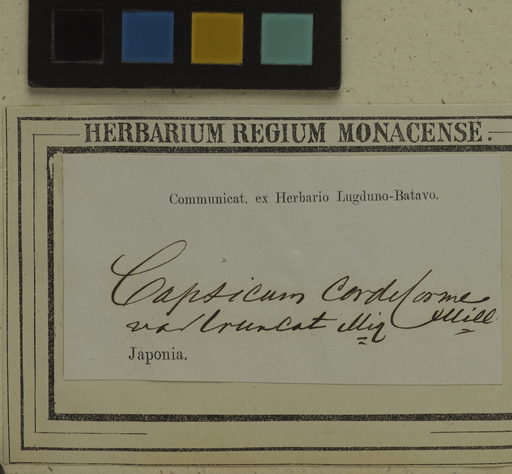 HERBARIUM REGIUM MONACENSE.
Communicat. ex Herbario Lugduno-Batavo.
Capsicum cordiforme Mill
var truncat Miq
Japonia.